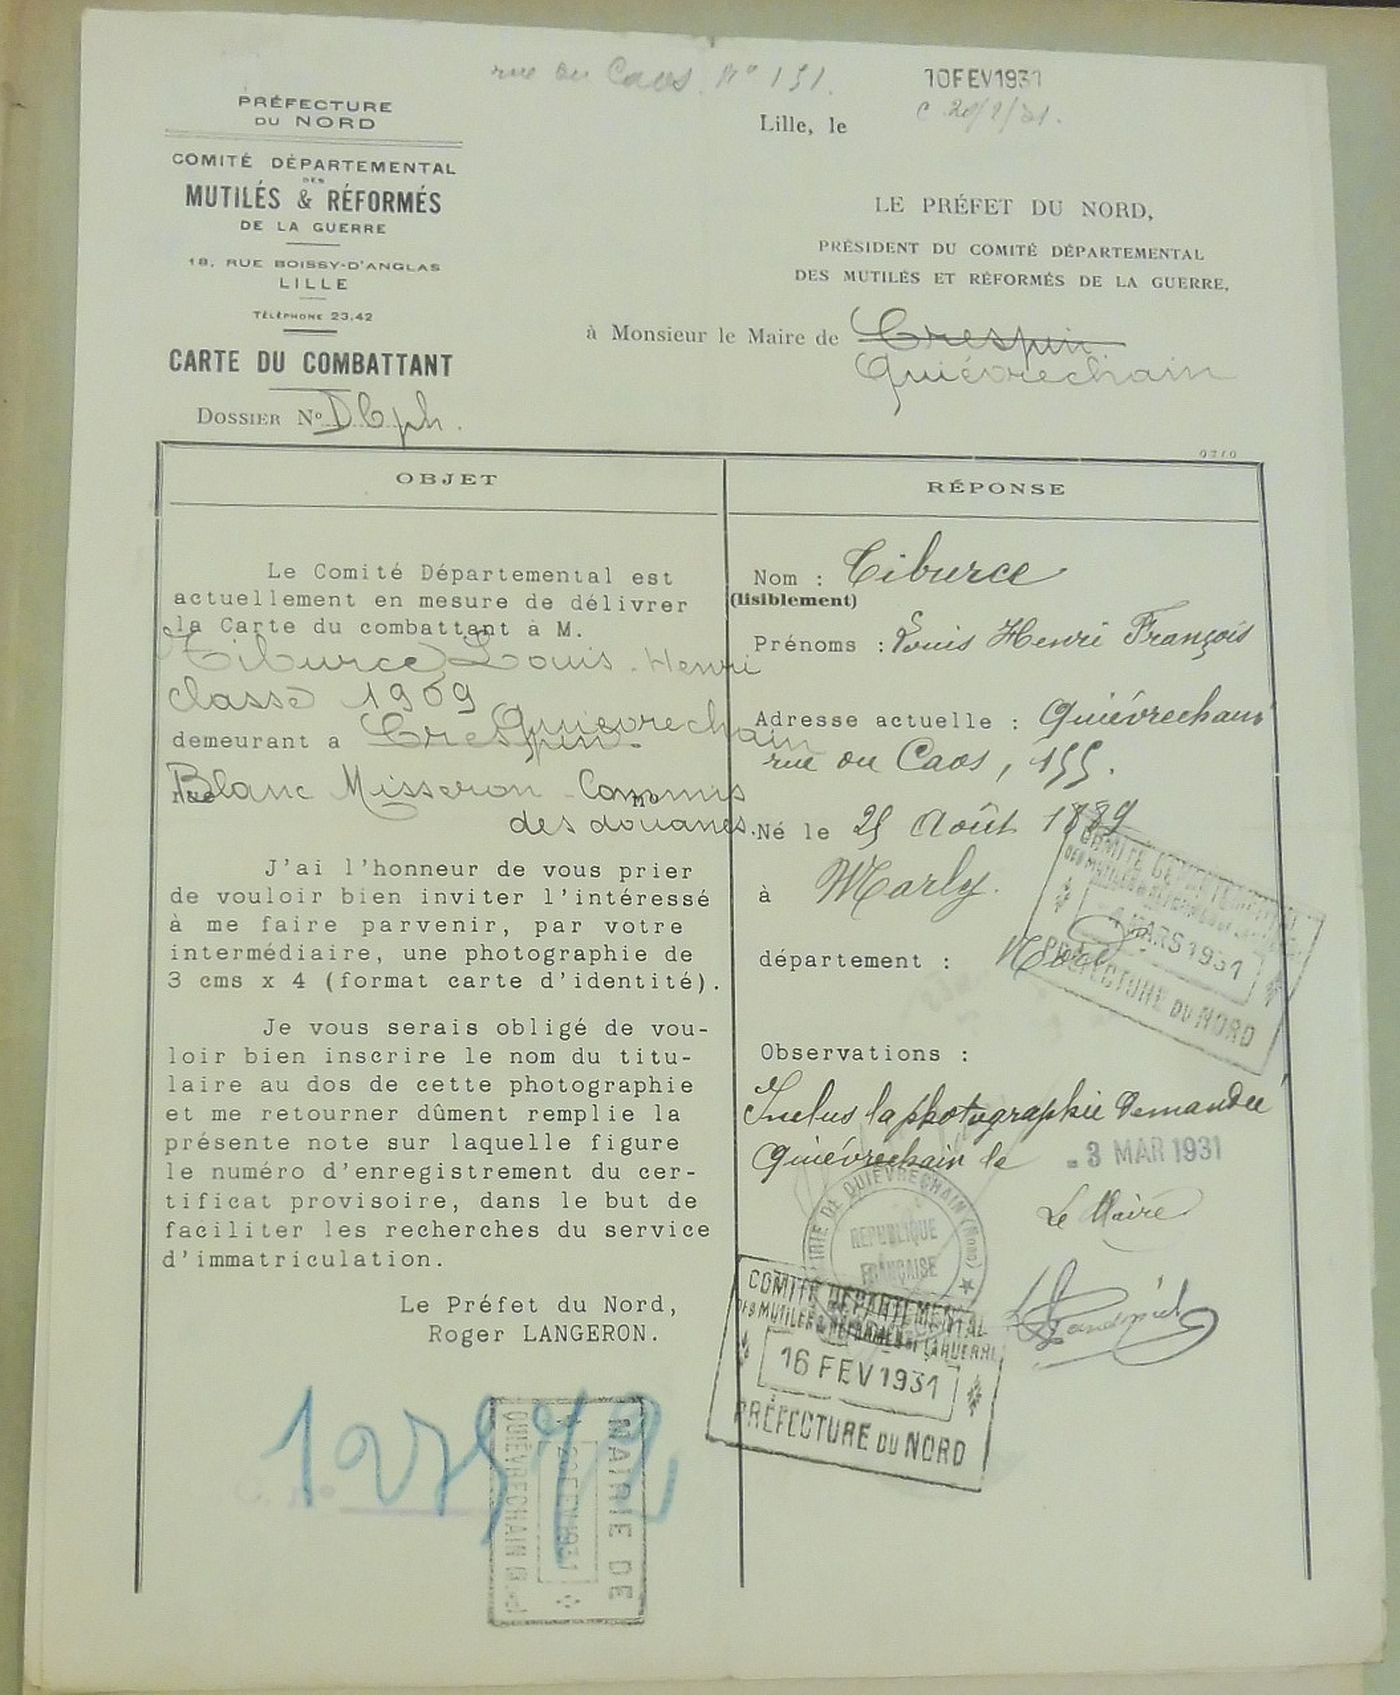 rue du Caos. N° 151.
10 FEV 1931
PRÉFECTURE
DU NORD
Lille, le
COMITÉ DÉPARTEMENTAL
DES
MUTILÉS & RÉFORMÉS
DE LA GUERRE
18, RUE BOISSY-D'ANGLAS
LILLE
TÉLÉPHONE 23,42
CARTE DU COMBATTANT
DOSSIER N°
LE PRÉFET DU NORD,
PRÉSIDENT DU COMITÉ DÉPARTEMENTAL
DES MUTILÉS ET RÉFORMÉS DE LA GUERRE,
à Monsieur le Maire de Crespin
Quiévrechain
OBJET
Le Comité Départemental est
actuellement en mesure de délivrer
la Carte du combattant à M.
Tiburce Louis-Henri
classe 1909
Quievrechain
demeurant a Crespin.
rue Blanc Misseron - Commis
N°
des douanes.
J'ai l'honneur de vous prier
de vouloir bien inviter l'intéressé
à me faire parvenir, par votre
intermédiaire, une photographie de
3 cms x 4 (format carte d'identité).
Je vous serais obligé de vou-
loir bien inscrire le nom du titu-
laire au dos de cette photographie
et me retourner dûment remplie la
présente note sur laquelle figure
le numéro d'enregistrement du cer-
tificat provisoire, dans le but de
faciliter les recherches du service
d'immatriculation.
Le Préfet du Nord,
Roger LANGERON.
MAIRIE DE
QUIÉVRECHAIN
RÉPONSE
Nom : Tiburce
(lisiblement)
Prénoms : Louis Henri François
Adresse actuelle : Quiévrechain
rue du Caos, 155.
Né le 25 Août 1889
à Marly.
département : Nord
COMITÉ DÉPARTEMENTAL
DES MUTILÉS & RÉFORMÉS DE LA GUERRE
4 MARS 1931
PRÉFECTURE DU NORD
Observations :
Inclus la photographie demandée
Quiévrechain le - 3 MAR 1931
Le Maire
MAIRIE DE QUIÉVRECHAIN (Nord)
RÉPUBLIQUE
FRANÇAISE
COMITÉ DÉPARTEMENTAL
DES MUTILÉS & RÉFORMÉS DE LA GUERRE
16 FEV 1931
PRÉFECTURE DU NORD